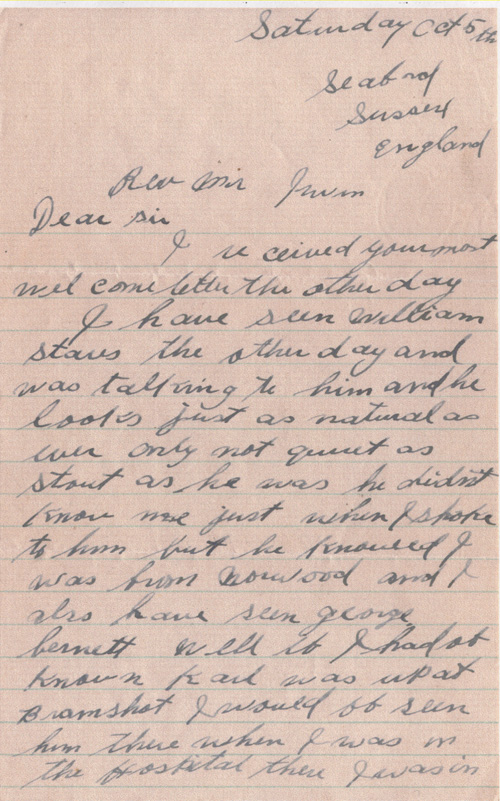 Saturday Oct 5th
Seaford
Sussex
England
Rev Mr Irwin
Dear Sir
I received your most
welcome letter the other day
I have seen William
Staves the other day and
was talking to him and he
looks just as natural as
ever only not quiet as
stout as he was he didn't
know me just when I spoke
to him but he knowed I
was from Norwood and I
also have seen george
bernett well if I had ob
known Karl was up at
Bramshot I would ob seen
him there when I was in
the Hospital there I was in